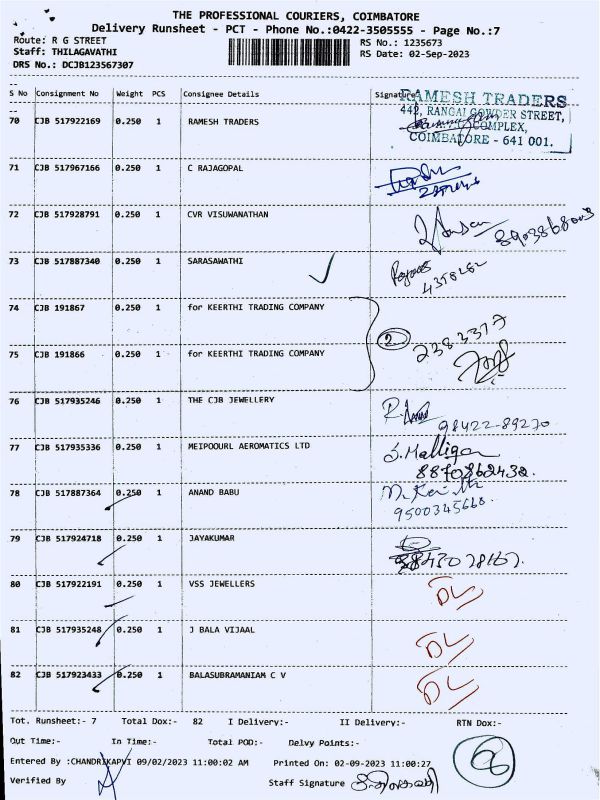 THE PROFESSIONAL COURIERS, COIMBATORE
Delivery Runsheet - PCT - Phone No.:0422-3505555 - Page No.:7
Route: R G STREET
RS No.: 1235673
Staff: THILAGAVATHI
RS Date: 02-Sep-2023
DRS No.: DCJB123567307
S No Consignment No Weight PCS Consignee Details Signature
RAMESH TRADERS
442, RANGAI GOWDER STREET,
COMPLEX,
COIMBATORE - 641 001.
70 CJB 517922169 0.250 1 RAMESH TRADERS
71 CJB 517967166 0.250 1 C RAJAGOPAL
72 CJB 517928791 0.250 1 CVR VISUWANATHAN
73 CJB 517887340 0.250 1 SARASAWATHI
4358262
74 CJB 191867 0.250 1 for KEERTHI TRADING COMPANY
2 2383317
75 CJB 191866 0.250 1 for KEERTHI TRADING COMPANY
76 CJB 517935246 0.250 1 THE CJB JEWELLERY
98422-89270
77 CJB 517935336 0.250 1 MEIPOOURL AEROMATICS LTD
S. Malliga
8870862432.
78 CJB 517887364 0.250 1 ANAND BABU
9500345668.
79 CJB 517924718 0.250 1 JAYAKUMAR
80 CJB 517922191 0.250 1 VSS JEWELLERS
DL
81 CJB 517935248 0.250 1 J BALA VIJAAL
DL
82 CJB 517923433 0.250 1 BALASUBRAMANIAM C V
DL
Tot. Runsheet:- 7 Total Dox:- 82 I Delivery:- II Delivery:- RTN Dox:-
Out Time:- In Time:- Total POD:- Delvy Points:-
Entered By :CHANDRIKAPVI 09/02/2023 11:00:02 AM Printed On: 02-09-2023 11:00:27
Verified By Staff Signature